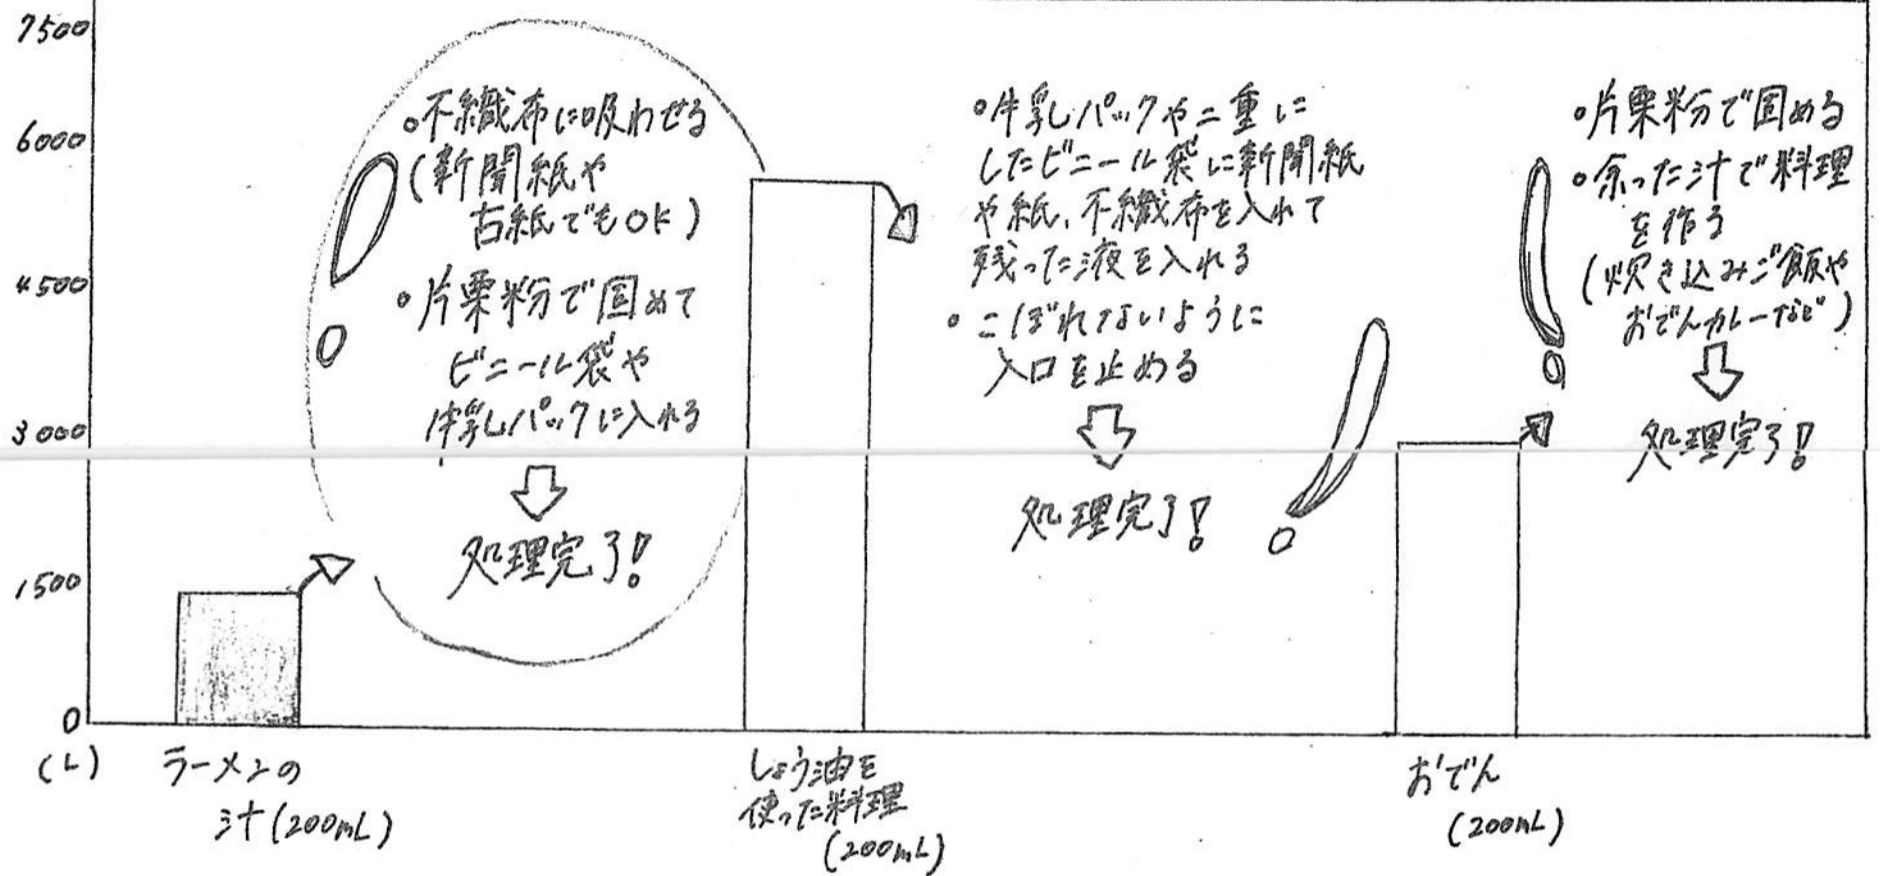 7500
6000
4500
3000
1500
0
(L)
。不織布に吸わせる
(新聞紙や
古紙でもOK)
。片栗粉で固めて
ビニール袋や
牛乳パックに入れる
処理完了!
。牛乳パックや二重に
したビニール袋に新聞紙
や紙、不織布を入れて
残った液を入れる
。こぼれないように
入口を止める
処理完了!
。片栗粉で固める
。余った汁で料理
を作る
(炊き込みご飯や
おでんカレーなど)
処理完了!
ラーメンの
汁(200mL)
しょう油を
使った料理
(200mL)
おでん
(200mL)